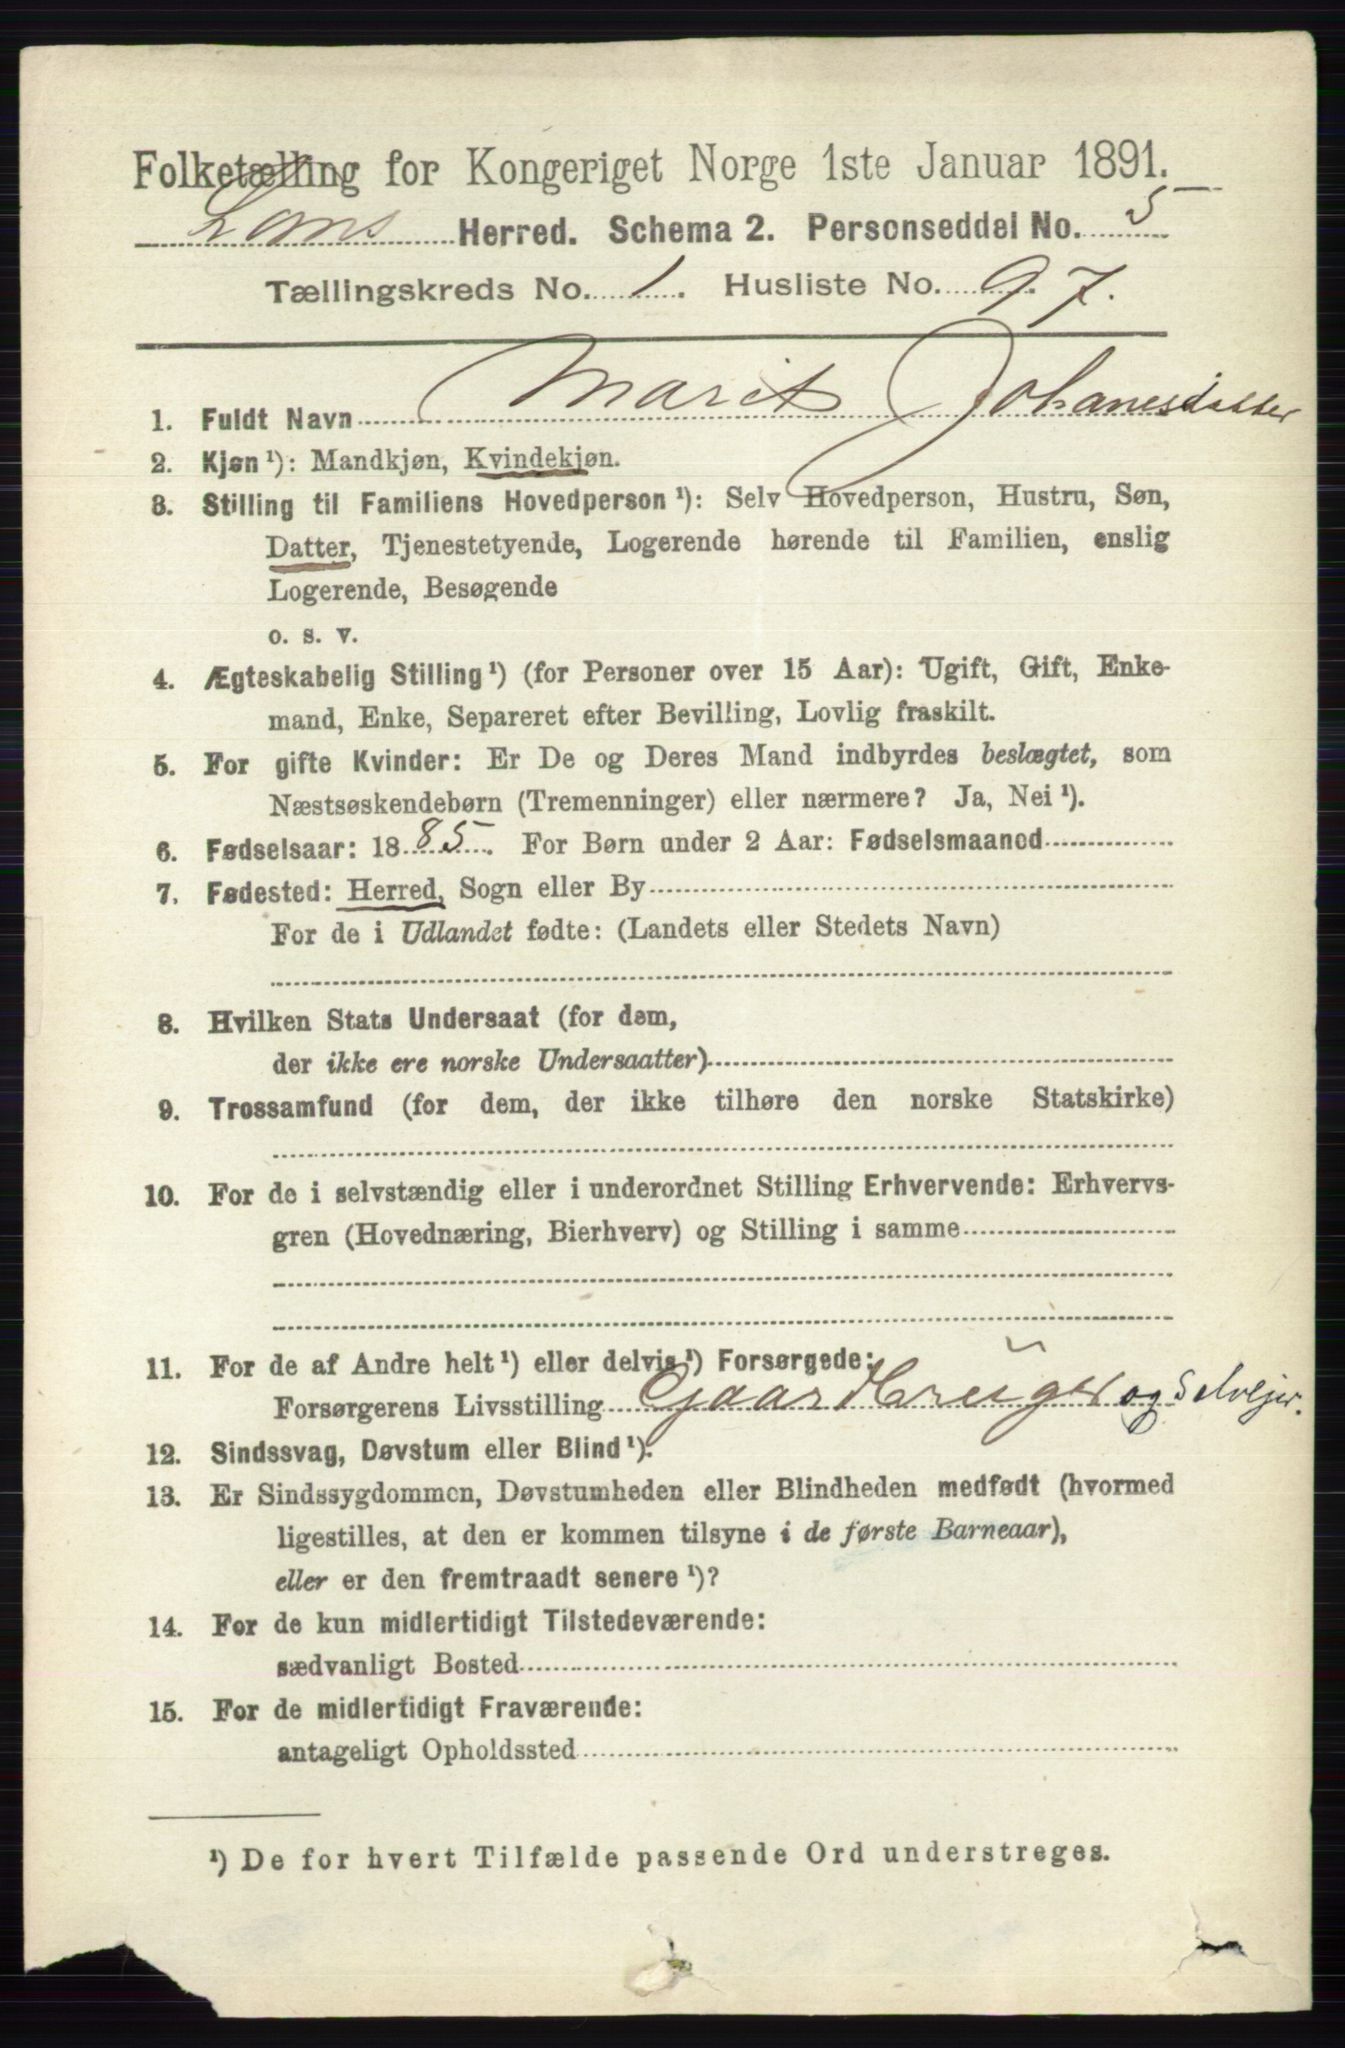 Folketælling for Kongeriget Norge 1ste Januar 1891.
Loms Herred. Schema 2. Personseddel No. 5
Tællingskreds No. 1. Husliste No. 97.
1. Fuldt Navn Marit Johanesdatter
2. Kjøn ¹): Mandkjøn, Kvindekjøn.
3. Stilling til Familiens Hovedperson ¹): Selv Hovedperson, Hustru, Søn,
Datter, Tjenestetyende, Logerende hørende til Familien, enslig
Logerende, Besøgende
o. s. v.
4. Ægteskabelig Stilling ¹) (for Personer over 15 Aar): Ugift, Gift, Enke-
mand, Enke, Separeret efter Bevilling, Lovlig fraskilt.
5. For gifte Kvinder: Er De og Deres Mand indbyrdes beslægtet, som
Næstsøskendebørn (Tremenninger) eller nærmere? Ja, Nei ¹).
6. Fødselsaar: 1885. For Børn under 2 Aar: Fødselsmaaned
7. Fødested: Herred, Sogn eller By
For de i Udlandet fødte: (Landets eller Stedets Navn)
8. Hvilken Stats Undersaat (for dem,
der ikke ere norske Undersaatter)
9. Trossamfund (for dem, der ikke tilhøre den norske Statskirke)
10. For de i selvstændig eller i underordnet Stilling Erhvervende: Erhvervs-
gren (Hovednæring, Bierhverv) og Stilling i samme
11. For de af Andre helt ¹) eller delvis ¹) Forsørgede:
Forsørgerens Livsstilling Gaardbruger og Selvejer.
12. Sindssvag, Døvstum eller Blind ¹).
13. Er Sindssygdommen, Døvstumheden eller Blindheden medfødt (hvormed
ligestilles, at den er kommen tilsyne i de første Barneaar),
eller er den fremtraadt senere ¹)?
14. For de kun midlertidigt Tilstedeværende:
sædvanligt Bosted
15. For de midlertidigt Fraværende:
antageligt Opholdssted
¹) De for hvert Tilfælde passende Ord understreges.